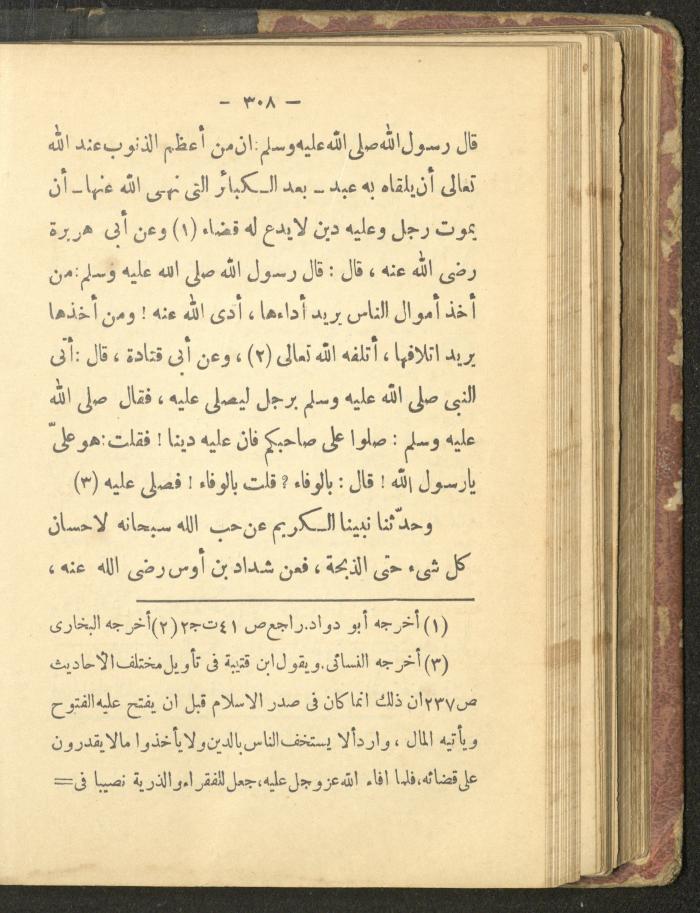 — ٣٠٨ —
قال رسول الله صلى الله عليه وسلم: ان من أعظم الذنوب عند الله
تعالى أن يلقاه به عبد ــ بعد الكبائر التى نهى الله عنها ــ أن
يموت رجل وعليه دين لايدع له قضاء (١) وعن أبى هريرة
رضى الله عنه ، قال : قال رسول الله صلى الله عليه وسلم: من
أخذ أموال الناس يريد أداءها ، أدى الله عنه ! ومن أخذها
يريد اتلافها ، أتلفه الله تعالى (٢) ، وعن أبى قتادة ، قال : أتى
النبى صلى الله عليه وسلم برجل ليصلى عليه ، فقال صلى الله
عليه وسلم : صلوا على صاحبكم فان عليه دينا ! فقلت: هو علىّ
يارسول الله ! قال : بالوفاء ؟ قلت بالوفاء ! فصلى عليه (٣)
وحدّثنا نبينا الكريم عن حب الله سبحانه لاحسان
كل شىء حتى الذبحة ، فعن شداد بن أوس رضى الله عنه ،
(١) أخرجه أبو دواد. راجع ص ٤١ ت ج٢ (٢) أخرجه البخارى
(٣) أخرجه النسائى. ويقول ابن قتيبة فى تأويل مختلف الأحاديث
ص٢٣٧ ان ذلك انما كان فى صدر الاسلام قبل ان يفتح عليه الفتوح
ويأتيه المال ، واراد ألا يستخف الناس بالدين ولا يأخذوا مالا يقدرون
على قضائه، فلما افاء الله عز وجل عليه، جعل للفقراء والذرية نصيبا فى =